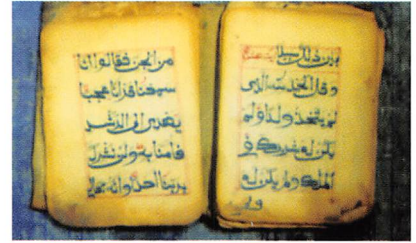 بين ذلك سبيلا
وقل الحمد لله الذي
لم يتخذ ولدا ولم
يكن له شريك في
الملك ولم يكن له
من الجن فقالوا انا
سمعنا قرانا عجبا
يهدي الى الرشد
فامنا به ولن نشرك
بربنا احدا وانه تعالى